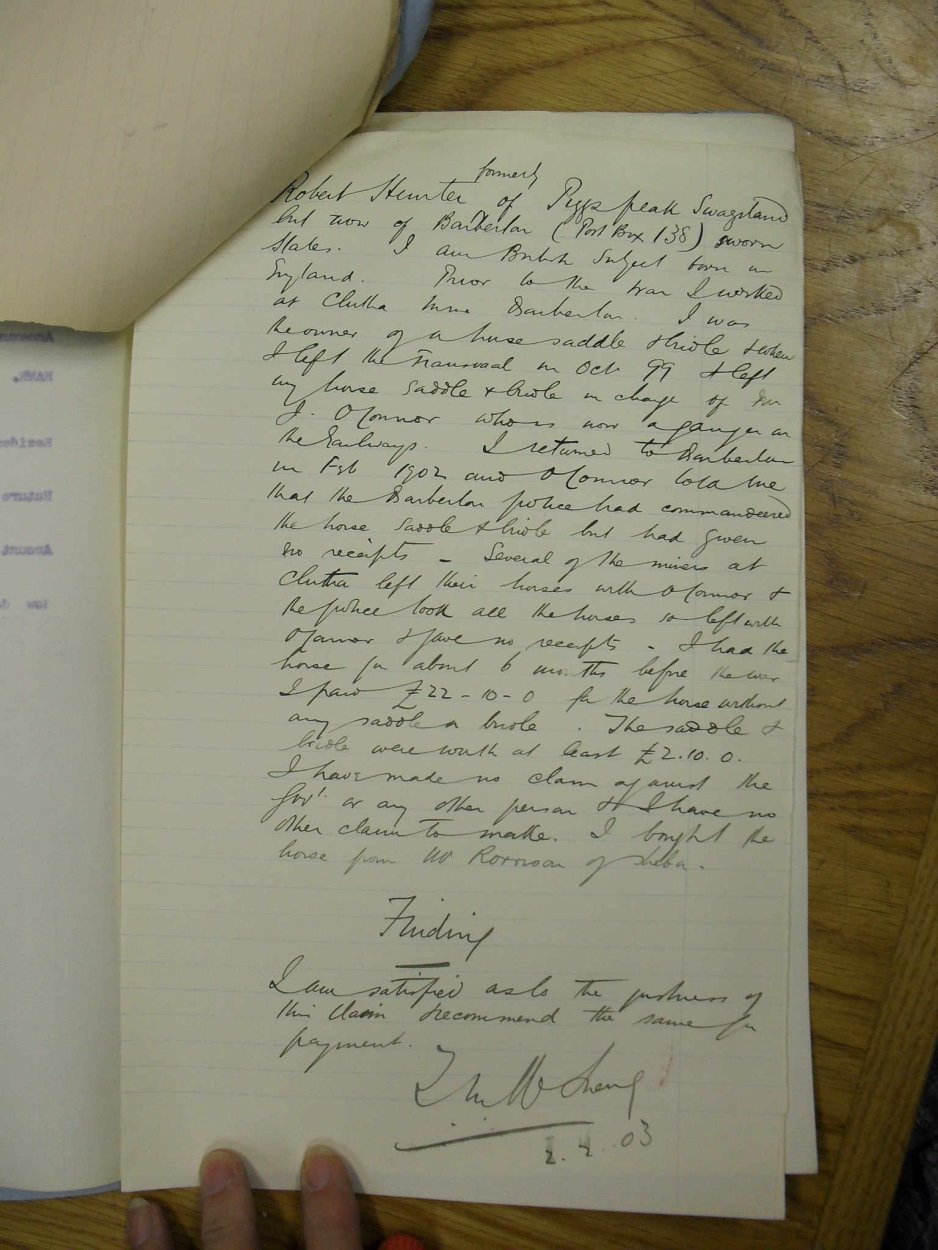 formerly
Robert Hunter of Piggs peak Swaziland
but now of Barberton (Post Box 138) sworn
states. I am British Subject born in
England. Prior to the war I worked
at Clutha mine Barberton. I was
the owner of a horse saddle & bridle & when
I left the Transvaal in Oct 99 I left
my horse saddle & bridle in charge of Mr
J. O'Connor who is now a ganger on
the Railways. I returned to Barberton
in Feb 1902 and O'Connor told me
that the Barberton police had commandeered
the horse saddle & bridle but had given
no receipts - Several of the miners at
Clutha left their horses with O'Connor &
the police took all the horses so left with
O'Connor & gave no receipts - I had the
horse for about 6 months before the war
I paid £22-10-0 for the horse without
any saddle or bridle. The saddle &
bridle were worth at least £2.10.0.
I have made no claim against the
Govt. or any other person & I have no
other claim to make. I bought the
horse from W Rorrison of Sheba.
Finding
I am satisfied as to the justness of
this claim & recommend the same for
payment.
2.2.03
Annexure
NAME.
Residen
Nature
Amount